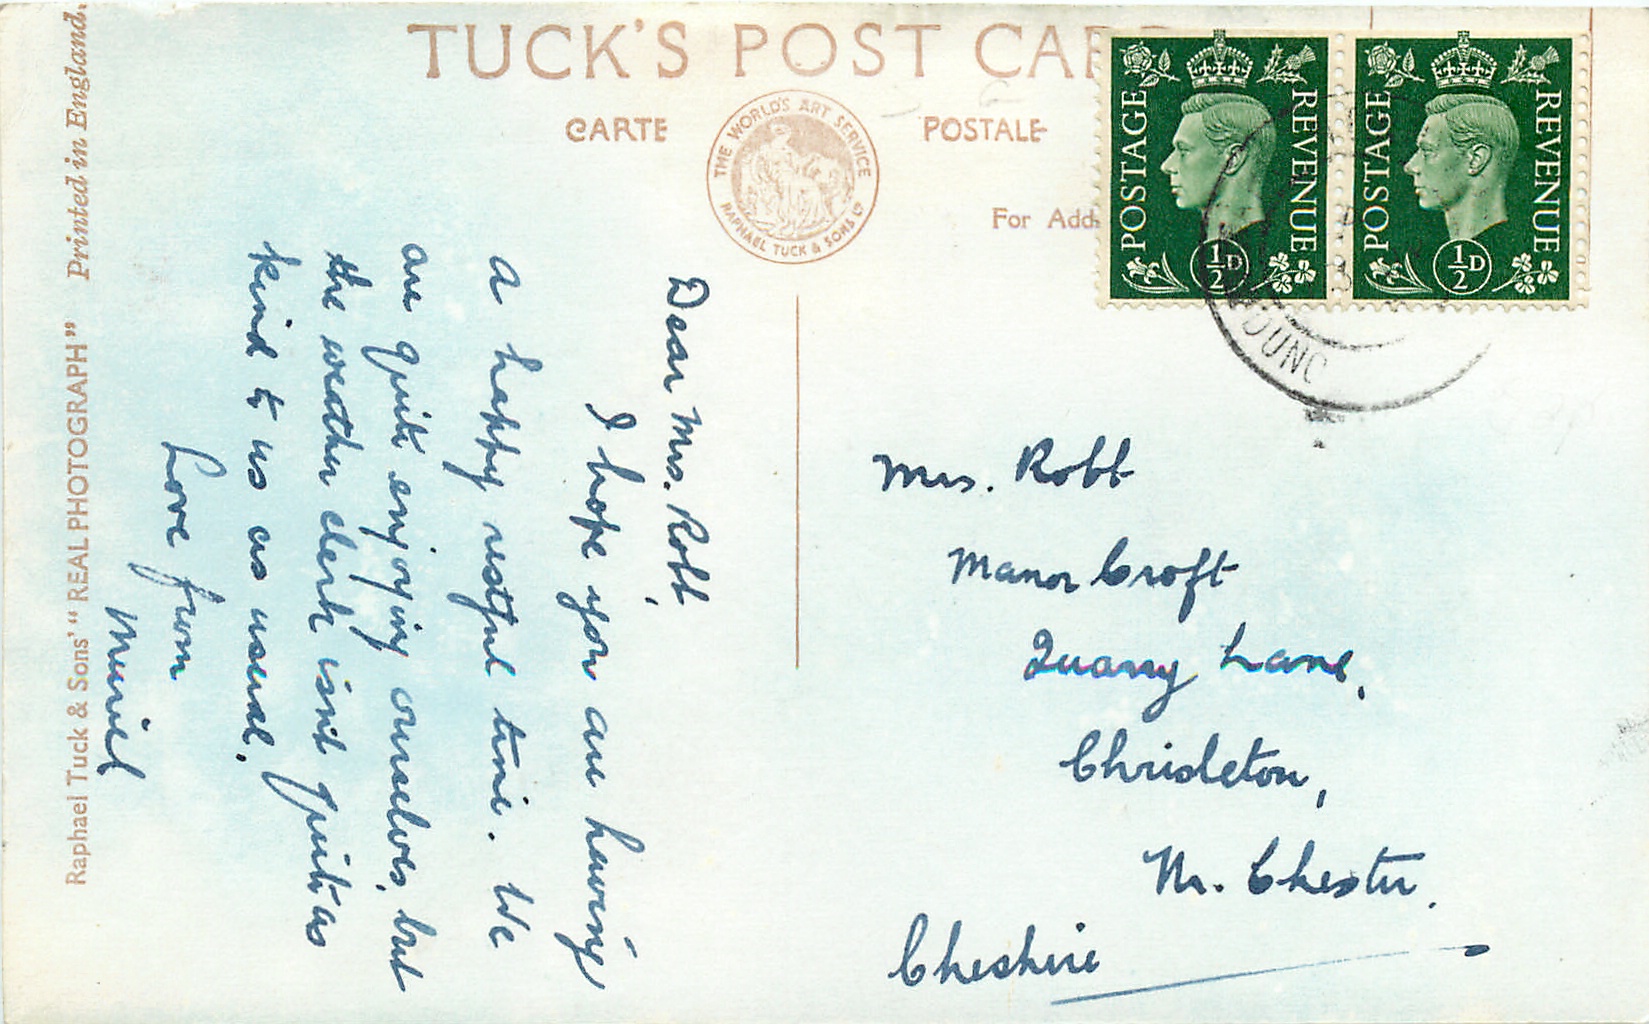 TUCK'S POST CAR
CARTE POSTALE
THE WORLD'S ART SERVICE
RAPHAEL TUCK & SONS LTD
For Add
POSTAGE REVENUE
½D
POSTAGE REVENUE
½D
Raphael Tuck & Sons' "REAL PHOTOGRAPH" Printed in England.
Dear Mrs. Robb,
I hope you are having
a happy restful time. We
are quite enjoying ourselves, but
the weather clerk isn't quite as
kind to us as usual.
Love from
Muriel
Mrs. Robb
Manor Croft
Quarry Lane,
Christleton,
Nr. Chester.
Cheshire